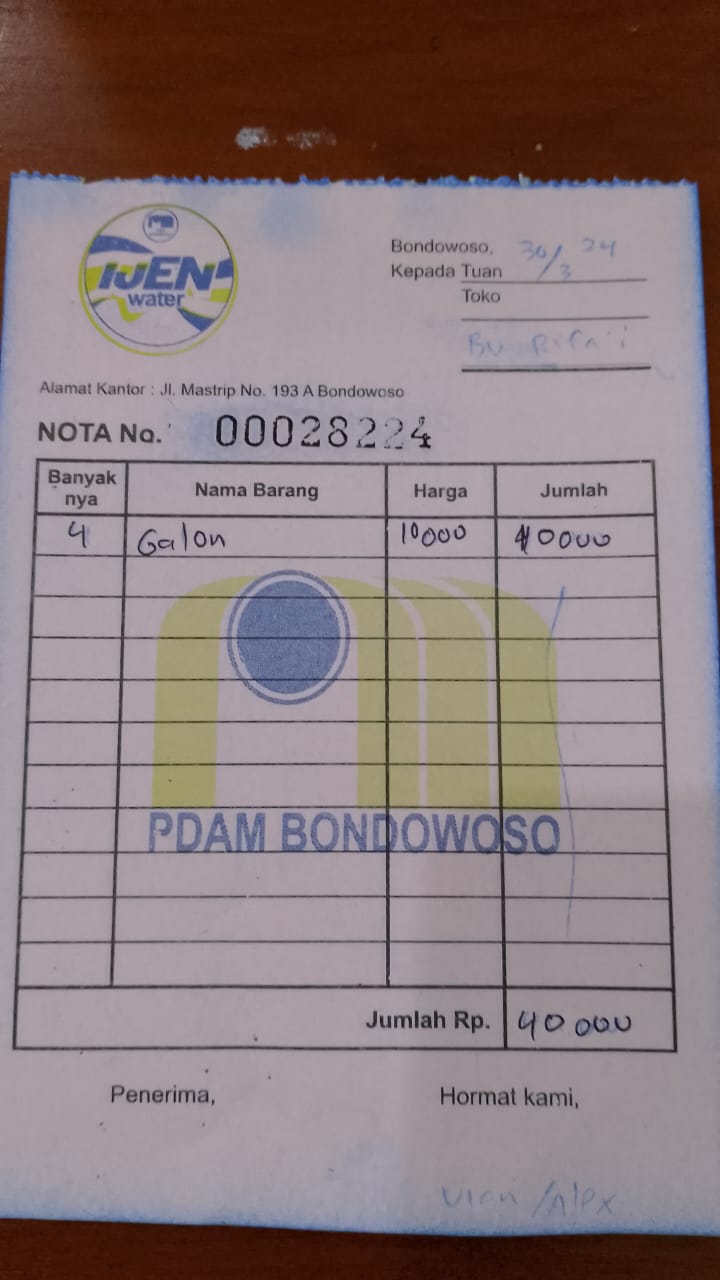 IJEN
water
Bondowoso, 30/3 24
Kepada Tuan
Toko
Bu Rifa'i
Alamat Kantor : Jl. Mastrip No. 193 A Bondowoso
NOTA No. 00028224
Banyak nya Nama Barang Harga Jumlah
4 Galon 10000 40000
PDAM BONDOWOSO
Jumlah Rp. 40000
Penerima, Hormat kami,
Vian /Alex